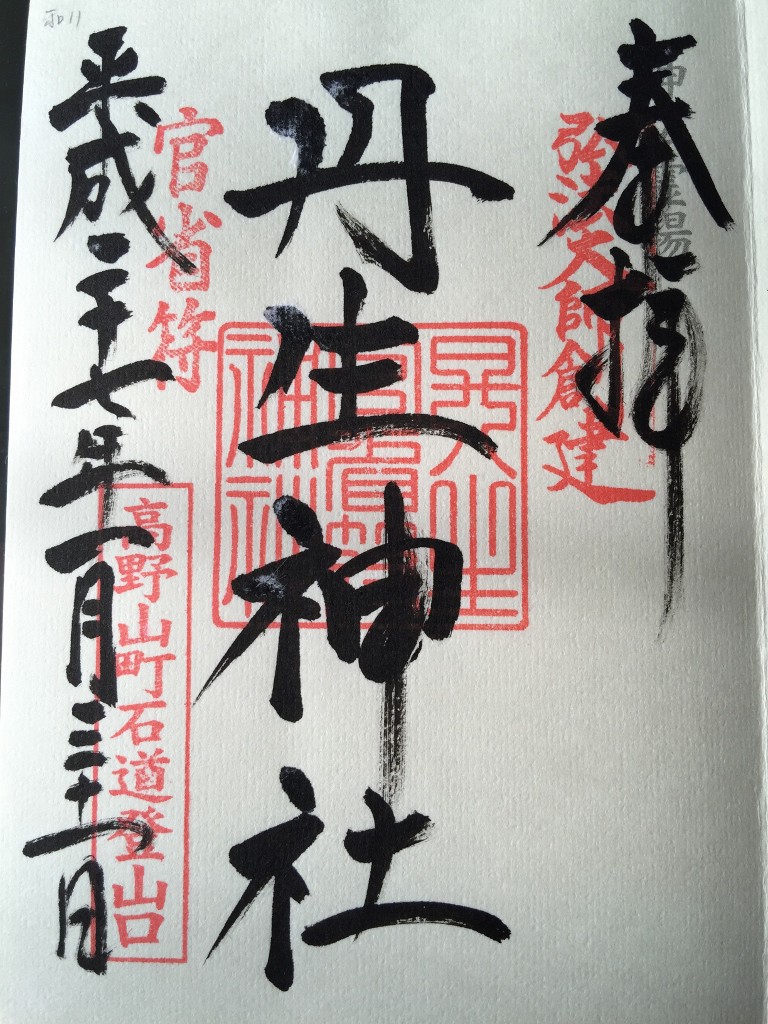 奉拝
弘法大師創建
丹生神社
官省符
高野山町石道登山口
平成二十七年一月三十一日
和11